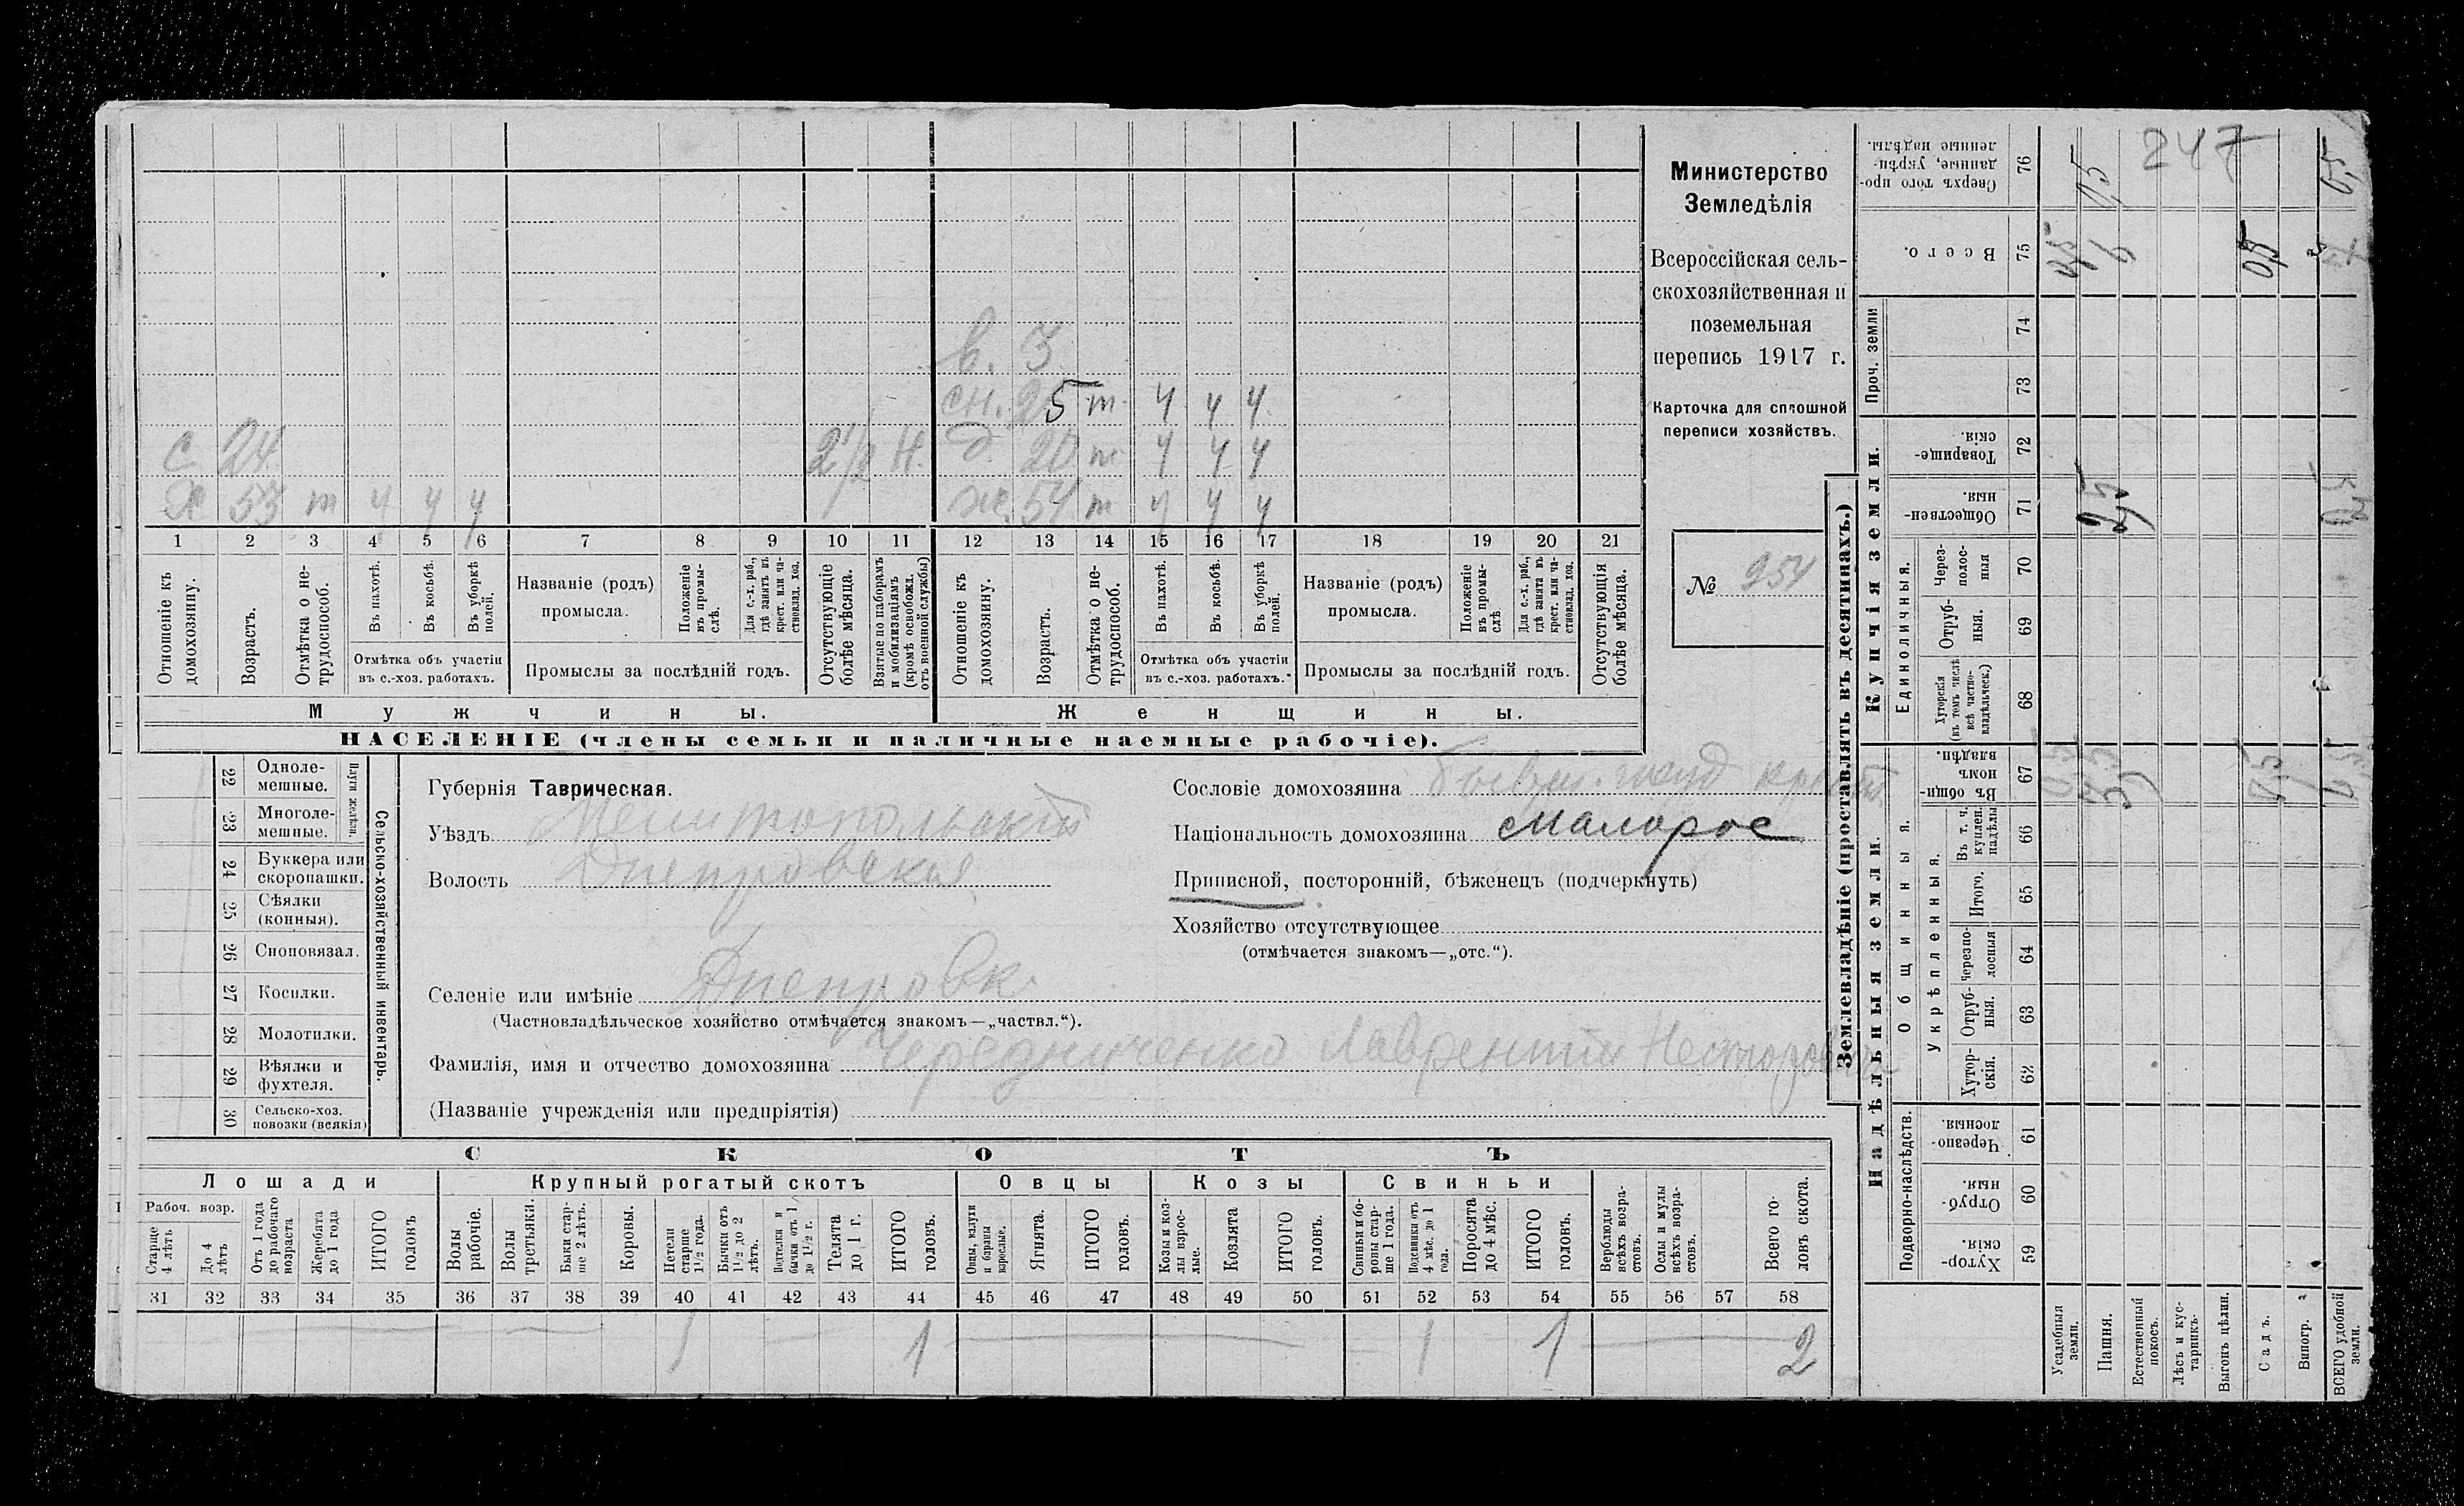 Министерство
Земледѣлія
Всероссійская сель-
скохозяйственная и
поземельная
перепись 1917 г.
Карточка для сплошной
переписи хозяйствъ.
№ 254
в. 3
сн. 25 т 4 4 4
с 24 2 1/2 Н. д 20 т 4 4 4
х 53 т 4 4 4 ж. 54 т 4 4 4
1 2 3 4 5 6 7 8 9 10 11 12 13 14 15 16 17 18 19 20 21
Отношеніе къ домохозяину.
Возрастъ.
Отмѣтка о не-трудоспособ.
Въ пахотѣ.
Въ косьбѣ.
Въ уборкѣ полей.
Отмѣтка объ участіи въ с.-хоз. работахъ.
Названіе (родъ) промысла.
Положеніе въ промы-слѣ.
Для с.-х. раб., гдѣ занятъ въ крест. или ча-стновлад. хоз.
Промыслы за послѣдній годъ.
Отсутствующіе болѣе мѣсяца.
Взятые по наборамъ и мобилизаціямъ (кромѣ освобожд. отъ военной службы)
Отношеніе къ домохозяину.
Возрастъ.
Отмѣтка о не-трудоспособ.
Въ пахотѣ.
Въ косьбѣ.
Въ уборкѣ полей.
Отмѣтка объ участіи въ с.-хоз. работахъ.
Названіе (родъ) промысла.
Положеніе въ промы-слѣ
Для с.-х. раб., гдѣ занята въ крест. или ча-стновлад. хоз.
Промыслы за послѣдній годъ.
Отсутствующія болѣе мѣсяца.
Мужчины.
Женщины.
НАСЕЛЕНІЕ (члены семьи и наличные наемные рабочіе).
Сельско-хозяйственный инвентарь.
Плуги желѣзн.
22 Одноле-мешные.
23 Многоле-мешные.
24 Буккера или скоропашки.
25 Сѣялки (конныя).
26 Сноповязал.
27 Косилки.
28 Молотилки.
29 Вѣялки и фухтеля.
30 Сельско-хоз. повозки (всякія)
Губернія Таврическая.
Уѣздъ Мелитопольскій
Волость Днепровская
Селеніе или имѣніе Днепровк.
(Частновладѣльческое хозяйство отмѣчается знакомъ—„частвл.“).
Фамилія, имя и отчество домохозяина Чередниченко Лаврентій Несторович
(Названіе учрежденія или предпріятія)
Сословіе домохозяина бывш. госуд крест.
Національность домохозяина малорос
Приписной, посторонній, бѣженецъ (подчеркнуть)
Хозяйство отсутствующее
(отмѣчается знакомъ—„отс.“).
СКОТЪ
Лошади
Крупный рогатый скотъ
Овцы
Козы
Свиньи
Рабоч. возр.
Старше 4 лѣтъ
До 4 лѣтъ
Отъ 1 года до рабочаго возраста
Жеребята до 1 года
ИТОГО головъ
Волы рабочіе.
Волы третьяки.
Быки стар-ше 2 лѣтъ.
Коровы.
Нетели старше 1½ года.
Бычки отъ 1½ до 2 лѣтъ.
Телята до 1 г.
ИТОГО головъ.
Овцы, валухи и бараны взрослые.
Ягнята.
ИТОГО головъ.
Козы и коз-лы взрос-лые.
Козлята
ИТОГО головъ.
Свиньи и бо-ровы стар-ше 1 года.
Подсвинки отъ 4 мѣс. до 1 года.
Поросята до 4 мѣс.
ИТОГО головъ.
Верблюды всѣхъ возра-стовъ.
Ослы и мулы всѣхъ возра-стовъ.
Всего го-ловъ скота.
31 32 33 34 35 36 37 38 39 40 41 42 43 44 45 46 47 48 49 50 51 52 53 54 55 56 57 58
1 1 1 1 2
Землевладѣніе (проставлять въ десятинахъ.)
Надѣльныя земли.
Купчія земли.
Проч. земли
Подворно-наслѣдств.
Общинныя.
Укрѣпленныя.
Единоличныя.
59 Хутор-скія.
60 Отруб-ныя.
61 Черезпо-лосныя.
62 Хутор-скія.
63 Отруб-ныя.
64 Черезпо-лосныя
65 Итого.
66 Въ т. ч. куплен. надѣлы
67 Въ общи-номъ владѣн.
68 Хуторскія (въ томъ числѣ всѣ частно-владѣльческ.)
69 Отруб-ныя.
70 Через-полос-ныя
71 Обществен-ныя.
72 Товарище-скія.
73
74
75 Всего.
76 Сверхъ того про-данные, укрѣп-ленные надѣлы.
247
Усадебныя земли.
Пашня.
Естественный покосъ.
Лѣсъ и кус-тарникъ.
Выгонъ цѣлин.
Садъ.
Виногр.
ВСЕГО удобной земли.